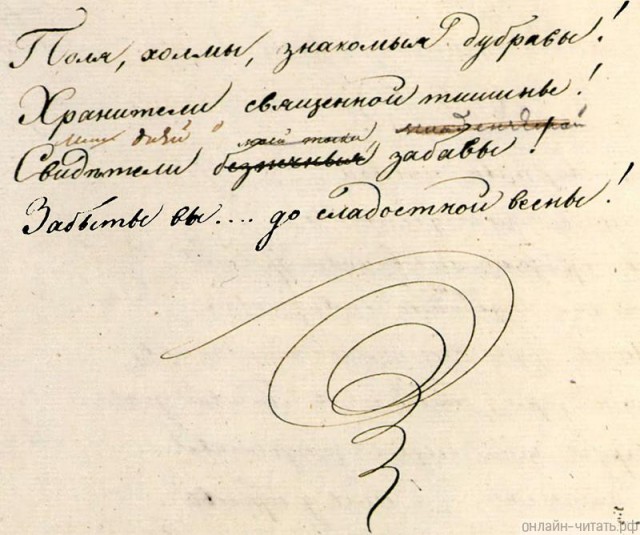 Поля, холмы, знакомыя дубравы!
Хранители священной тишины!
моихъ дней моей тоски
Свидѣтели забавы!
Забыты вы.... до сладостной весны!
онлайн-читать.рф